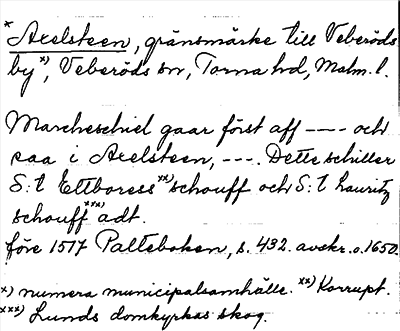 * Axelsteen, gränsmärke till Veberöds
by *), Veberöds sn, Torna hd, Malm. l.
Marcheschiel gaar först aff ---- och
saa i Axelsteen, ---. Dette schiller
S:t Ettboress **) schouff och S:t Lauritz
schouff ***) adt.
före 1517 Palteboken, s. 432. avskr. o. 1650.
*) numera municipalsamhälle. **) Korrupt.
***) Lunds domkyrkas skog.